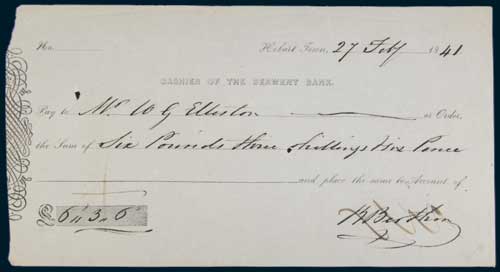 No. Hobart Town, 27 Feby 1841
CASHIER OF THE DERWENT BANK.
Pay to Mr W G Elliston or Order,
the Sum of Six Pounds three Shillings & six Pence
and place the same to Account of
£ 6 " 3 " 6